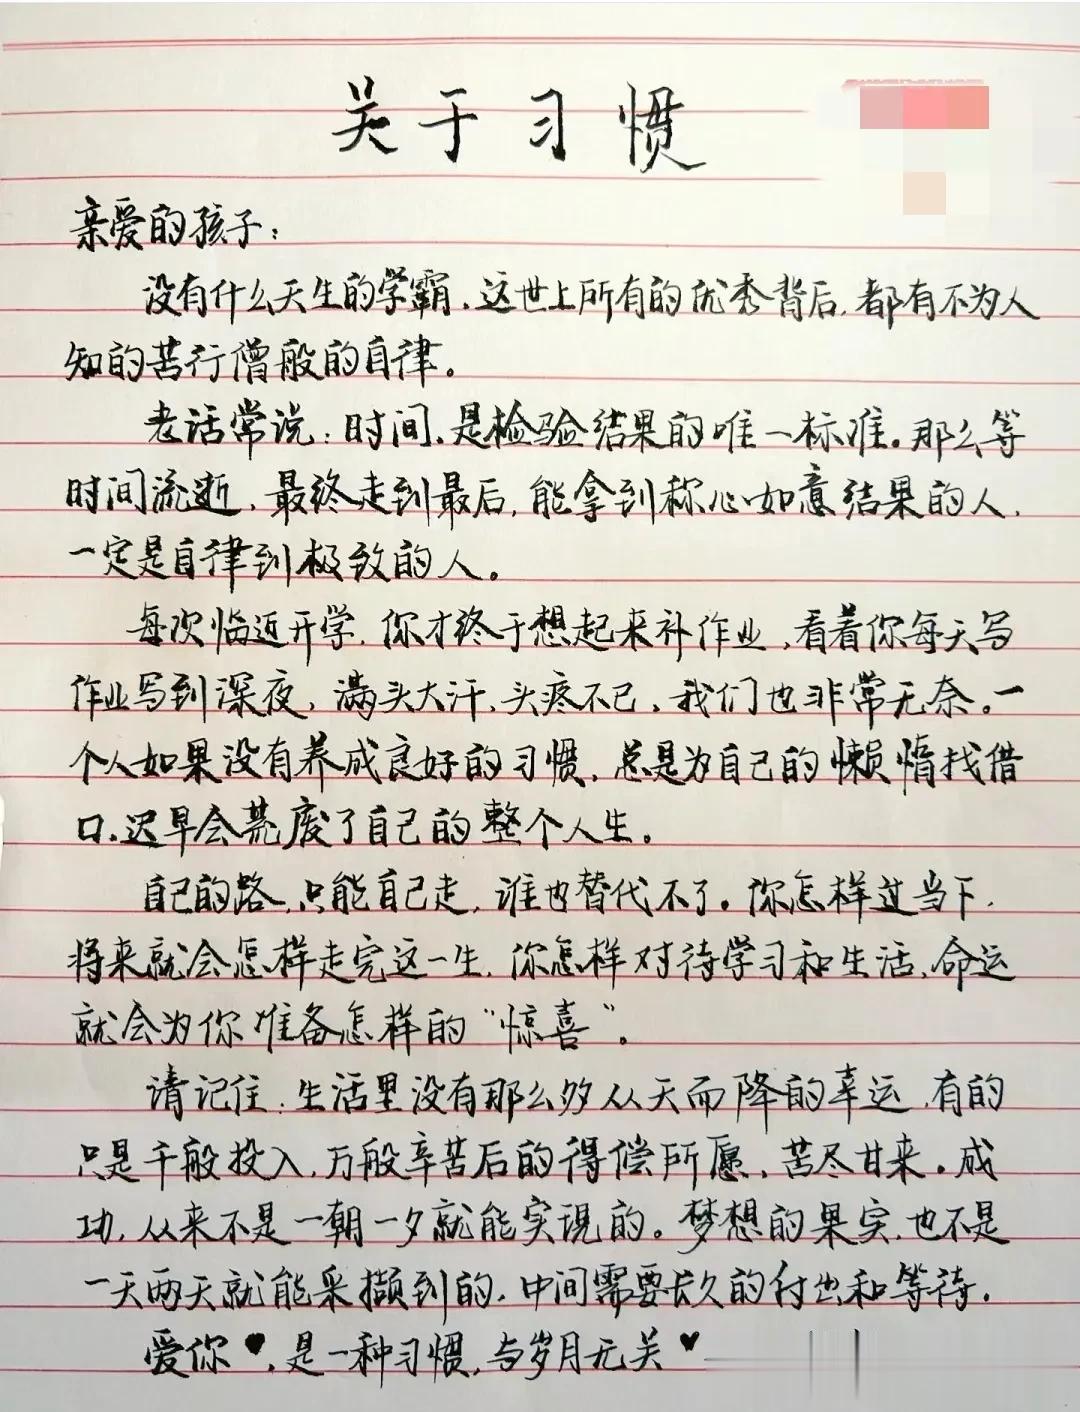 关于习惯
亲爱的孩子：
没有什么天生的学霸，这世上所有的优秀背后，都有不为人
知的苦行僧般的自律。
老话常说：时间，是检验结果的唯一标准。那么等
时间流逝，最终走到最后，能拿到称心如意结果的人，
一定是自律到极致的人。
每次临近开学，你才终于想起来补作业，看着你每天写
作业写到深夜，满头大汗，头疼不已，我们也非常无奈。一
个人如果没有养成良好的习惯，总是为自己的懒惰找借
口，迟早会荒废了自己的整个人生。
自己的路，只能自己走，谁也替代不了。你怎样过当下，
将来就会怎样走完这一生，你怎样对待学习和生活，命运
就会为你准备怎样的“惊喜”。
请记住：生活里没有那么多从天而降的幸运，有的
只是千般投入，万般辛苦后的得偿所愿，苦尽甘来。成
功，从来不是一朝一夕就能实现的。梦想的果实，也不是
一天两天就能采撷到的，中间需要长久的付出和等待。
爱你♥，是一种习惯，与岁月无关♥